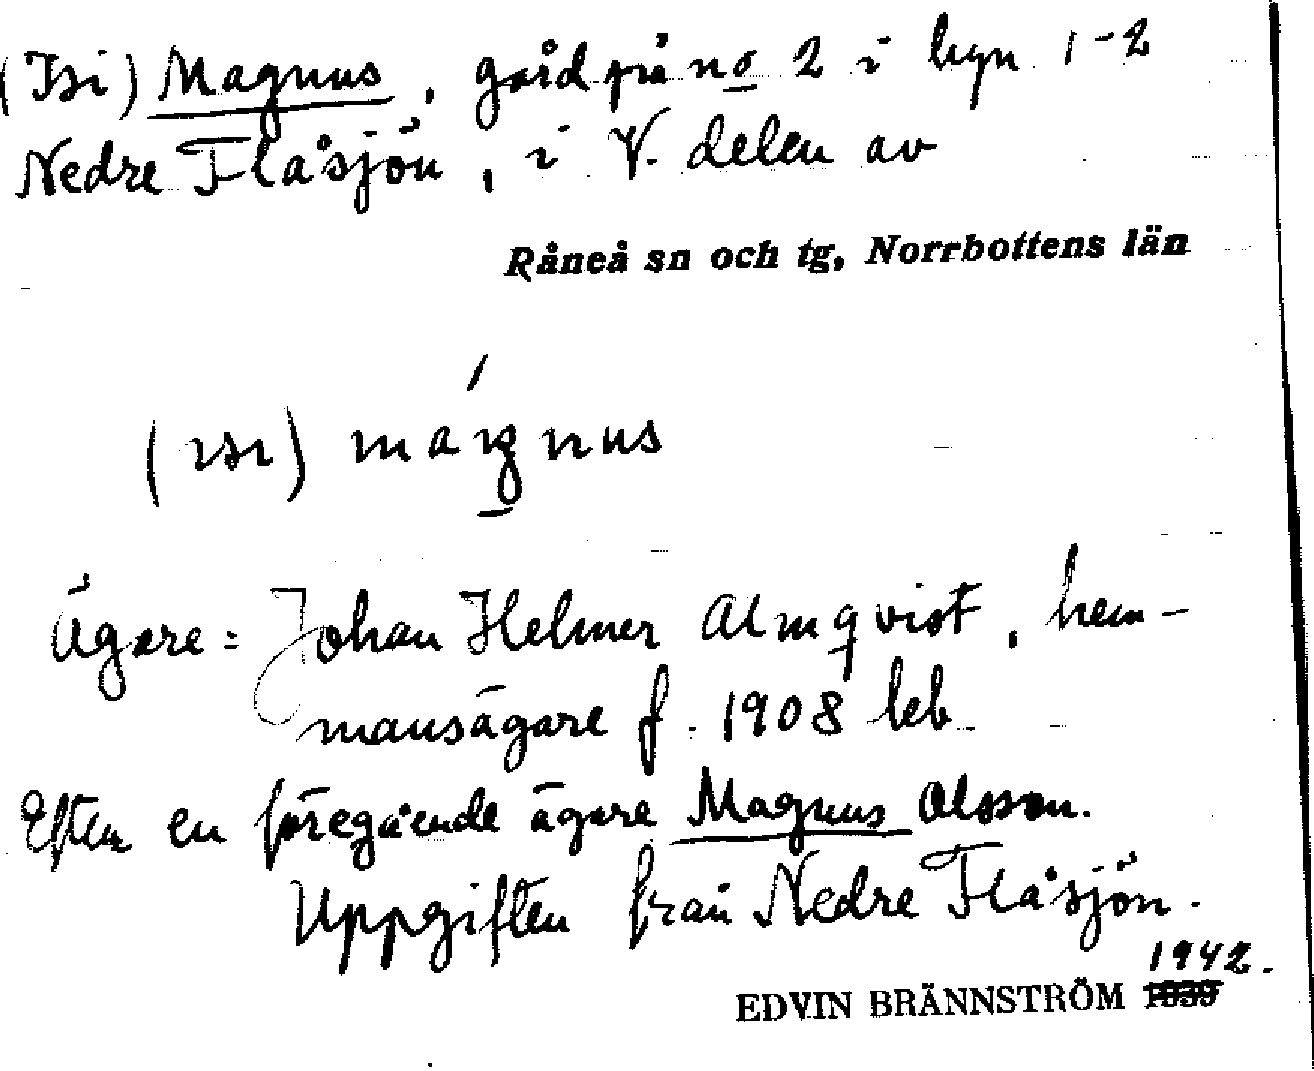 (Isi) Magnus, gård på no 2 i byn 1-2
Nedre Flåsjön, i V. delen av
Råneå sn och tg, Norrbottens län
(ısı) máŋnus
Ägare: Johan Helmer Almqvist, hem-
mansägare f. 1908 leb.
Efter en föregående ägare Magnus Olsson.
Uppgiften från Nedre Flåsjön.
1942.
EDVIN BRÄNNSTRÖM 1939